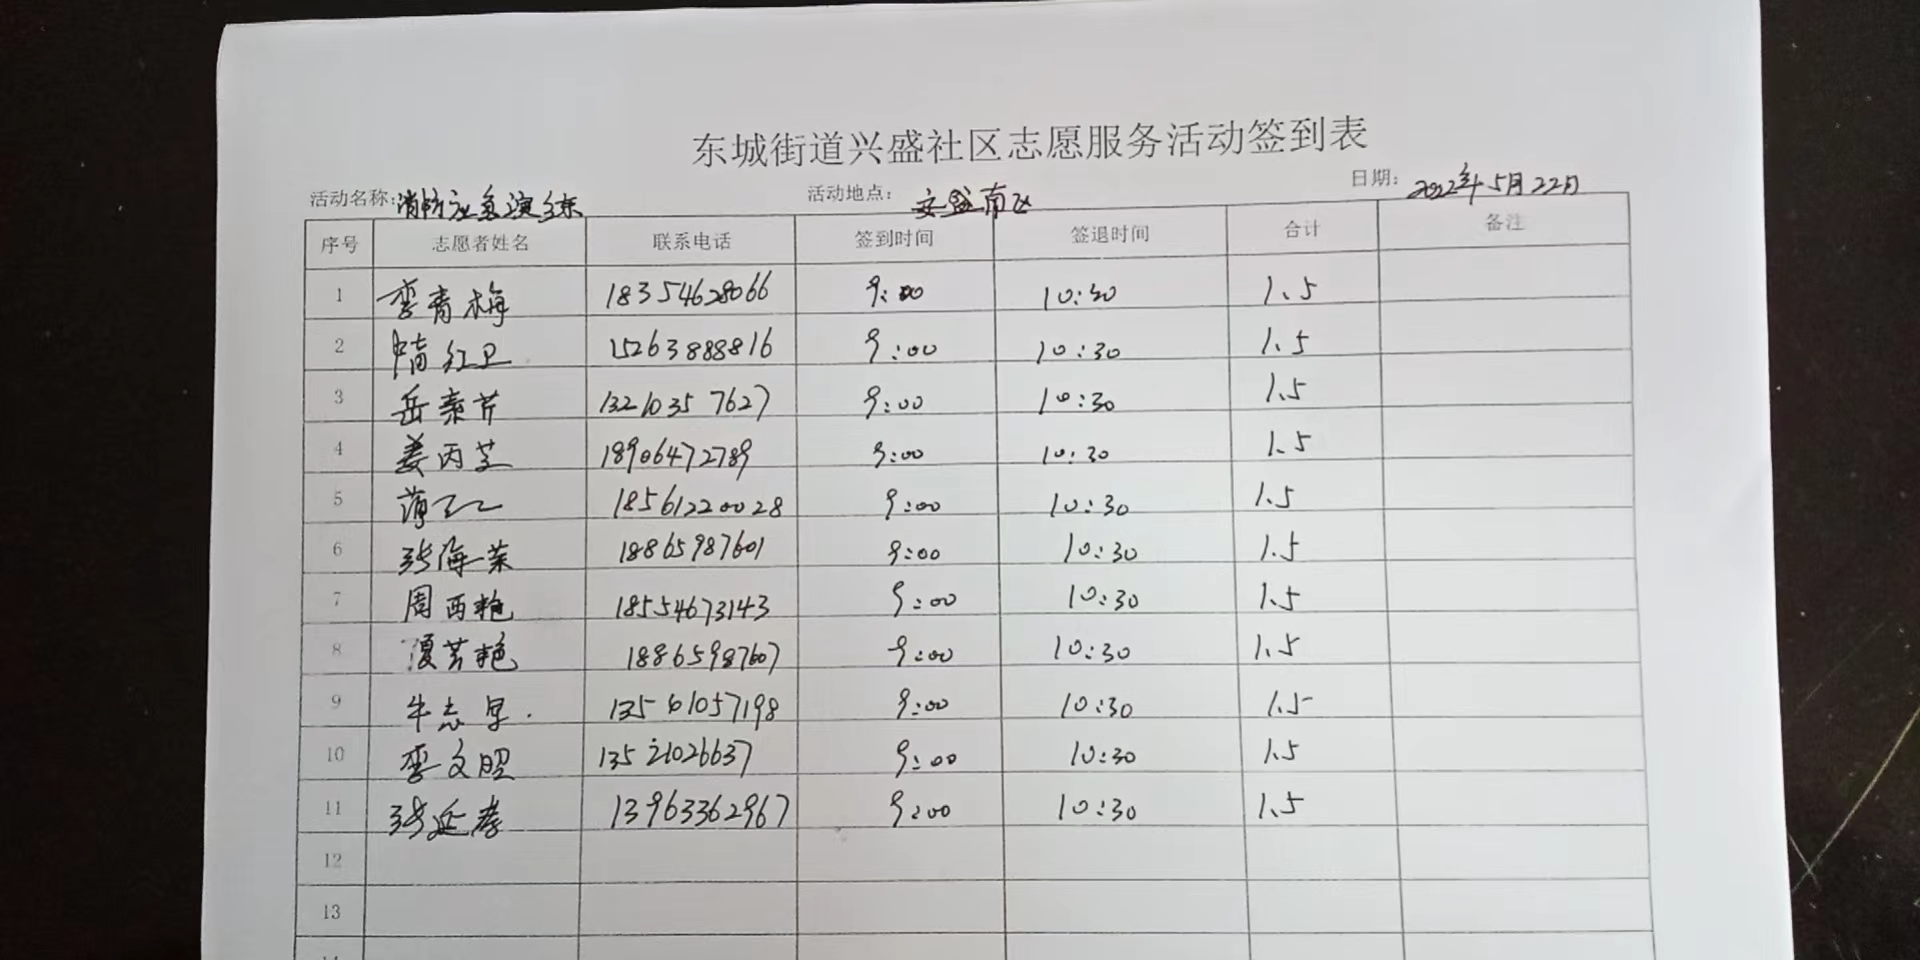 东城街道兴盛社区志愿服务活动签到表
活动名称:消防应急演练 活动地点: 安盛南区 日期: 2022年5月22日
序号 志愿者姓名 联系电话 签到时间 签退时间 合计 备注
1 李青梅 18354628066 9:00 10:30 1.5
2 隋红卫 15263888816 9:00 10:30 1.5
3 岳素芹 13210357627 9:00 10:30 1.5
4 姜丙芝 18906472789 9:00 10:30 1.5
5 蒲 18561220028 9:00 10:30 1.5
6 张海荣 18865987601 9:00 10:30 1.5
7 周西艳 18554673143 9:00 10:30 1.5
8 艳 18865987607 9:00 10:30 1.5
9 牛志 13561057198 9:00 10:30 1.5
10 李文昭 13521026637 9:00 10:30 1.5
11 张延孝 13963362967 9:00 10:30 1.5
12
13